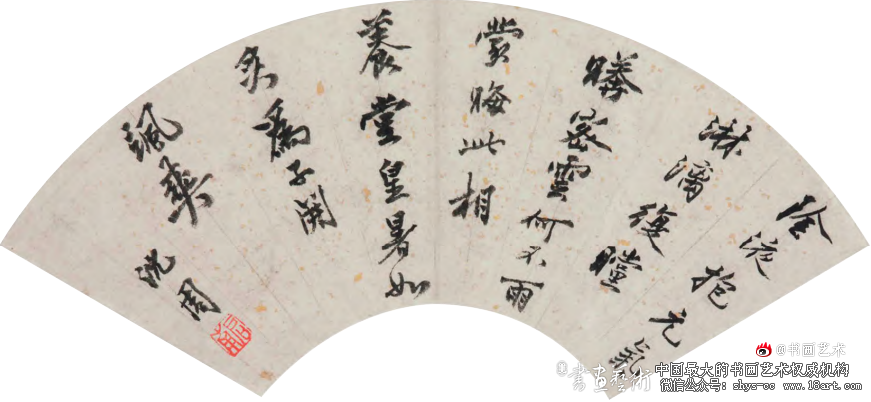 冷液抱元氣
淋漓復曈
曨密雲何不雨
當晦此相
養堂皇暑如
炙為子開
颯爽
沈周
@书画艺术
書画藝術
中国最大的书画艺术权威机构
微信公众号：shys-cc www.18art.com